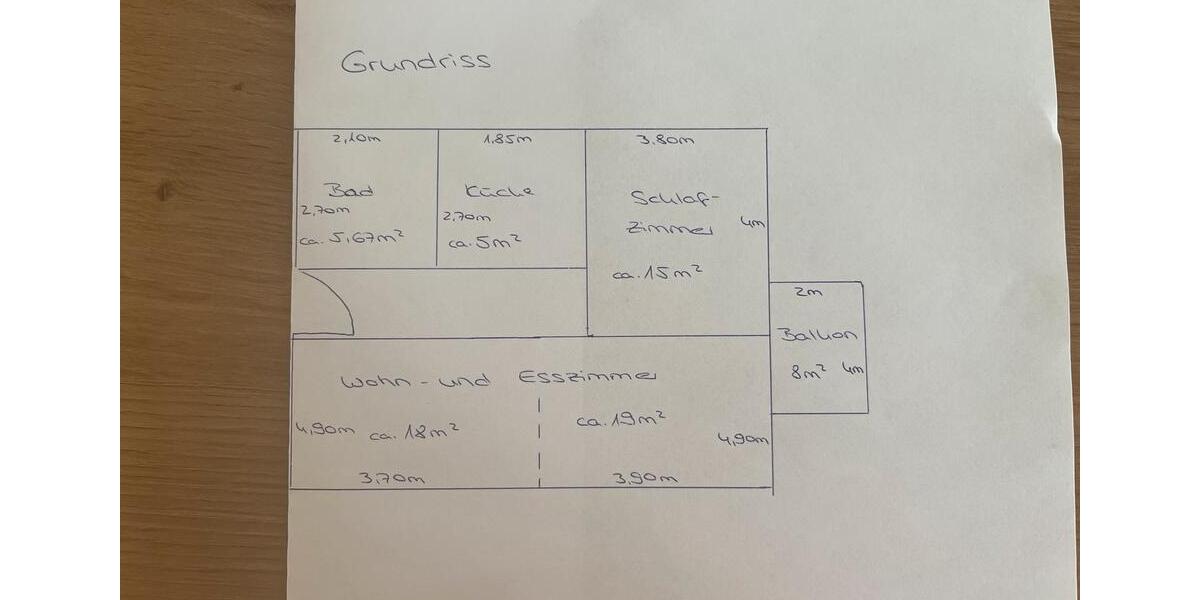 Grundriss
2,10m
1,85m
3.80m
Bad
2,70m
ca. 5,67m²
Küche
2,70m
ca. 5m²
Schlaf-
zimmer
4m
ca. 15m²
2m
Balkon
8m²
4m
Wohn- und Esszimmer
4,90m
ca. 18m²
ca. 19m²
4,90m
3,70m
3,90m